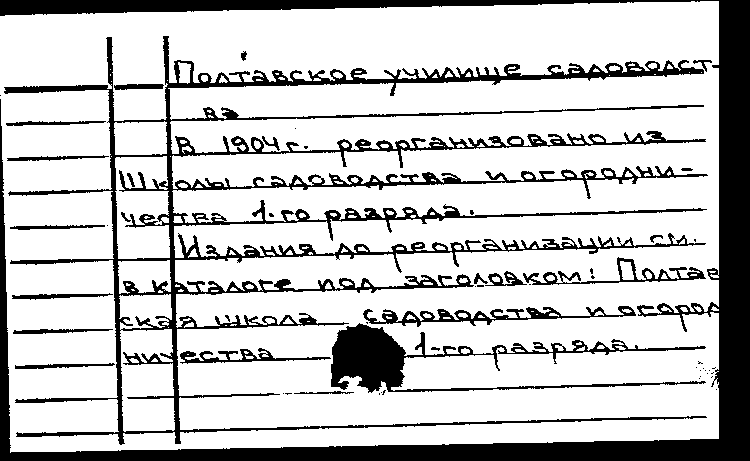 Полтавское училище садоводст-
ва
В 1904 г. реорганизовано из
Школы садоводства и огородни-
чества 1-го разряда.
Издания до реорганизации см.
в каталоге под заголовком: Полтав
ская школа садоводства и огород
ничества 1-го разряда.